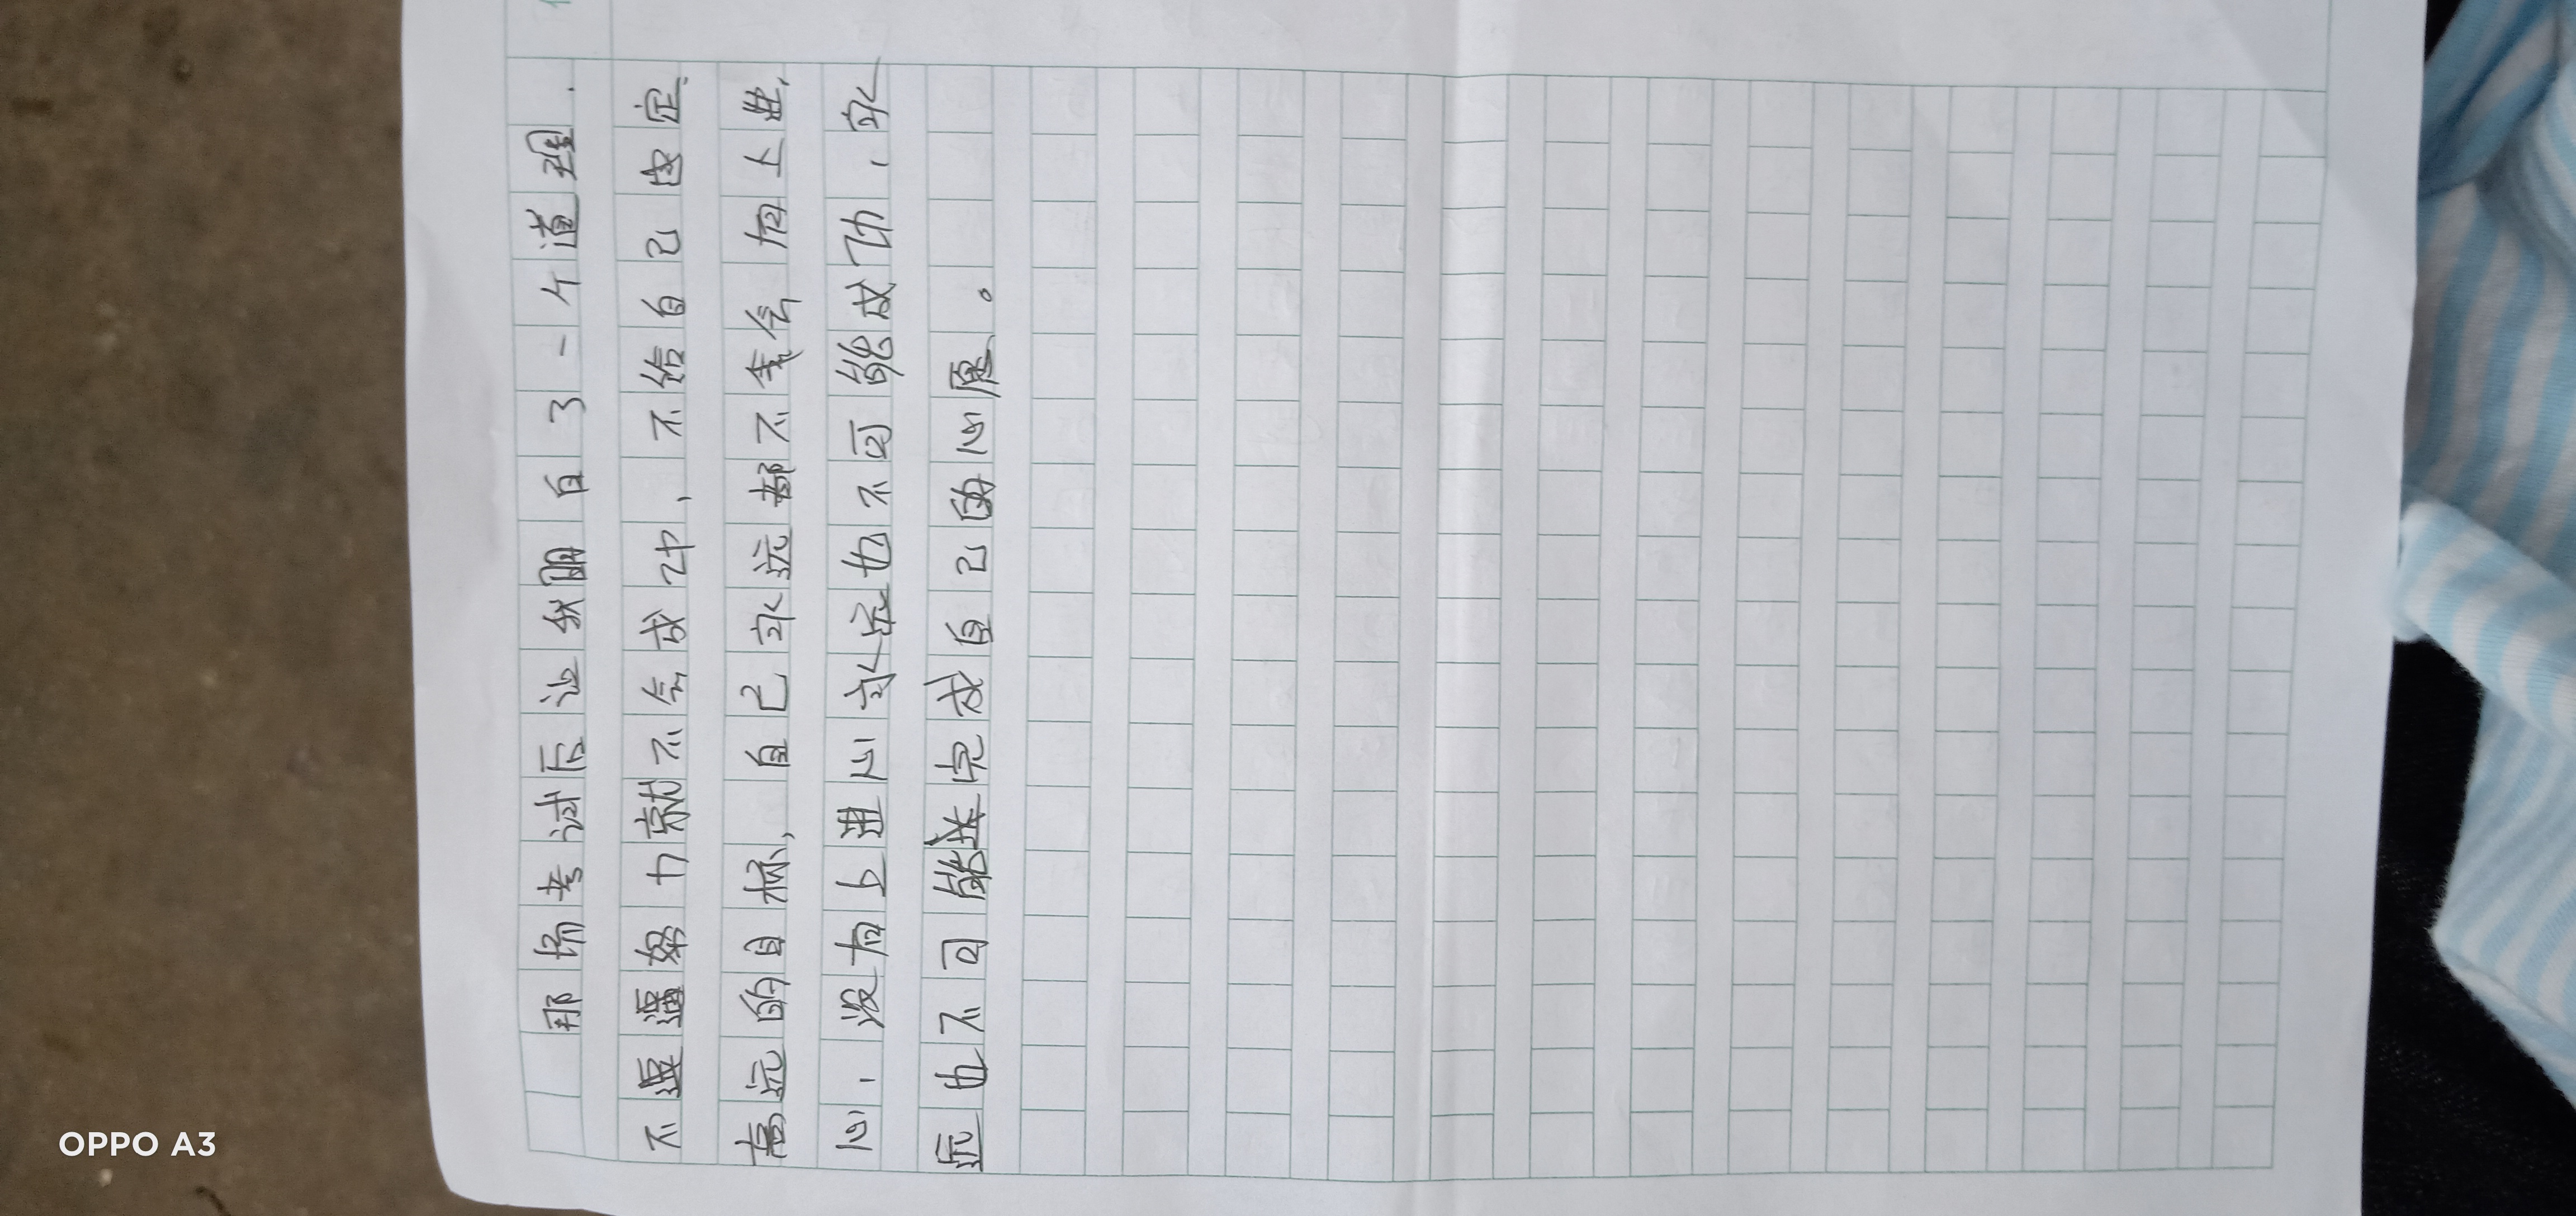 那场考试下让我明白了一个道理.
不努力就不会成功,不给自己定
高远的目标,自己永远都不会有上进,
心,没有上进心永远也不可能成功,永
远也不可能来完成自己的心愿。